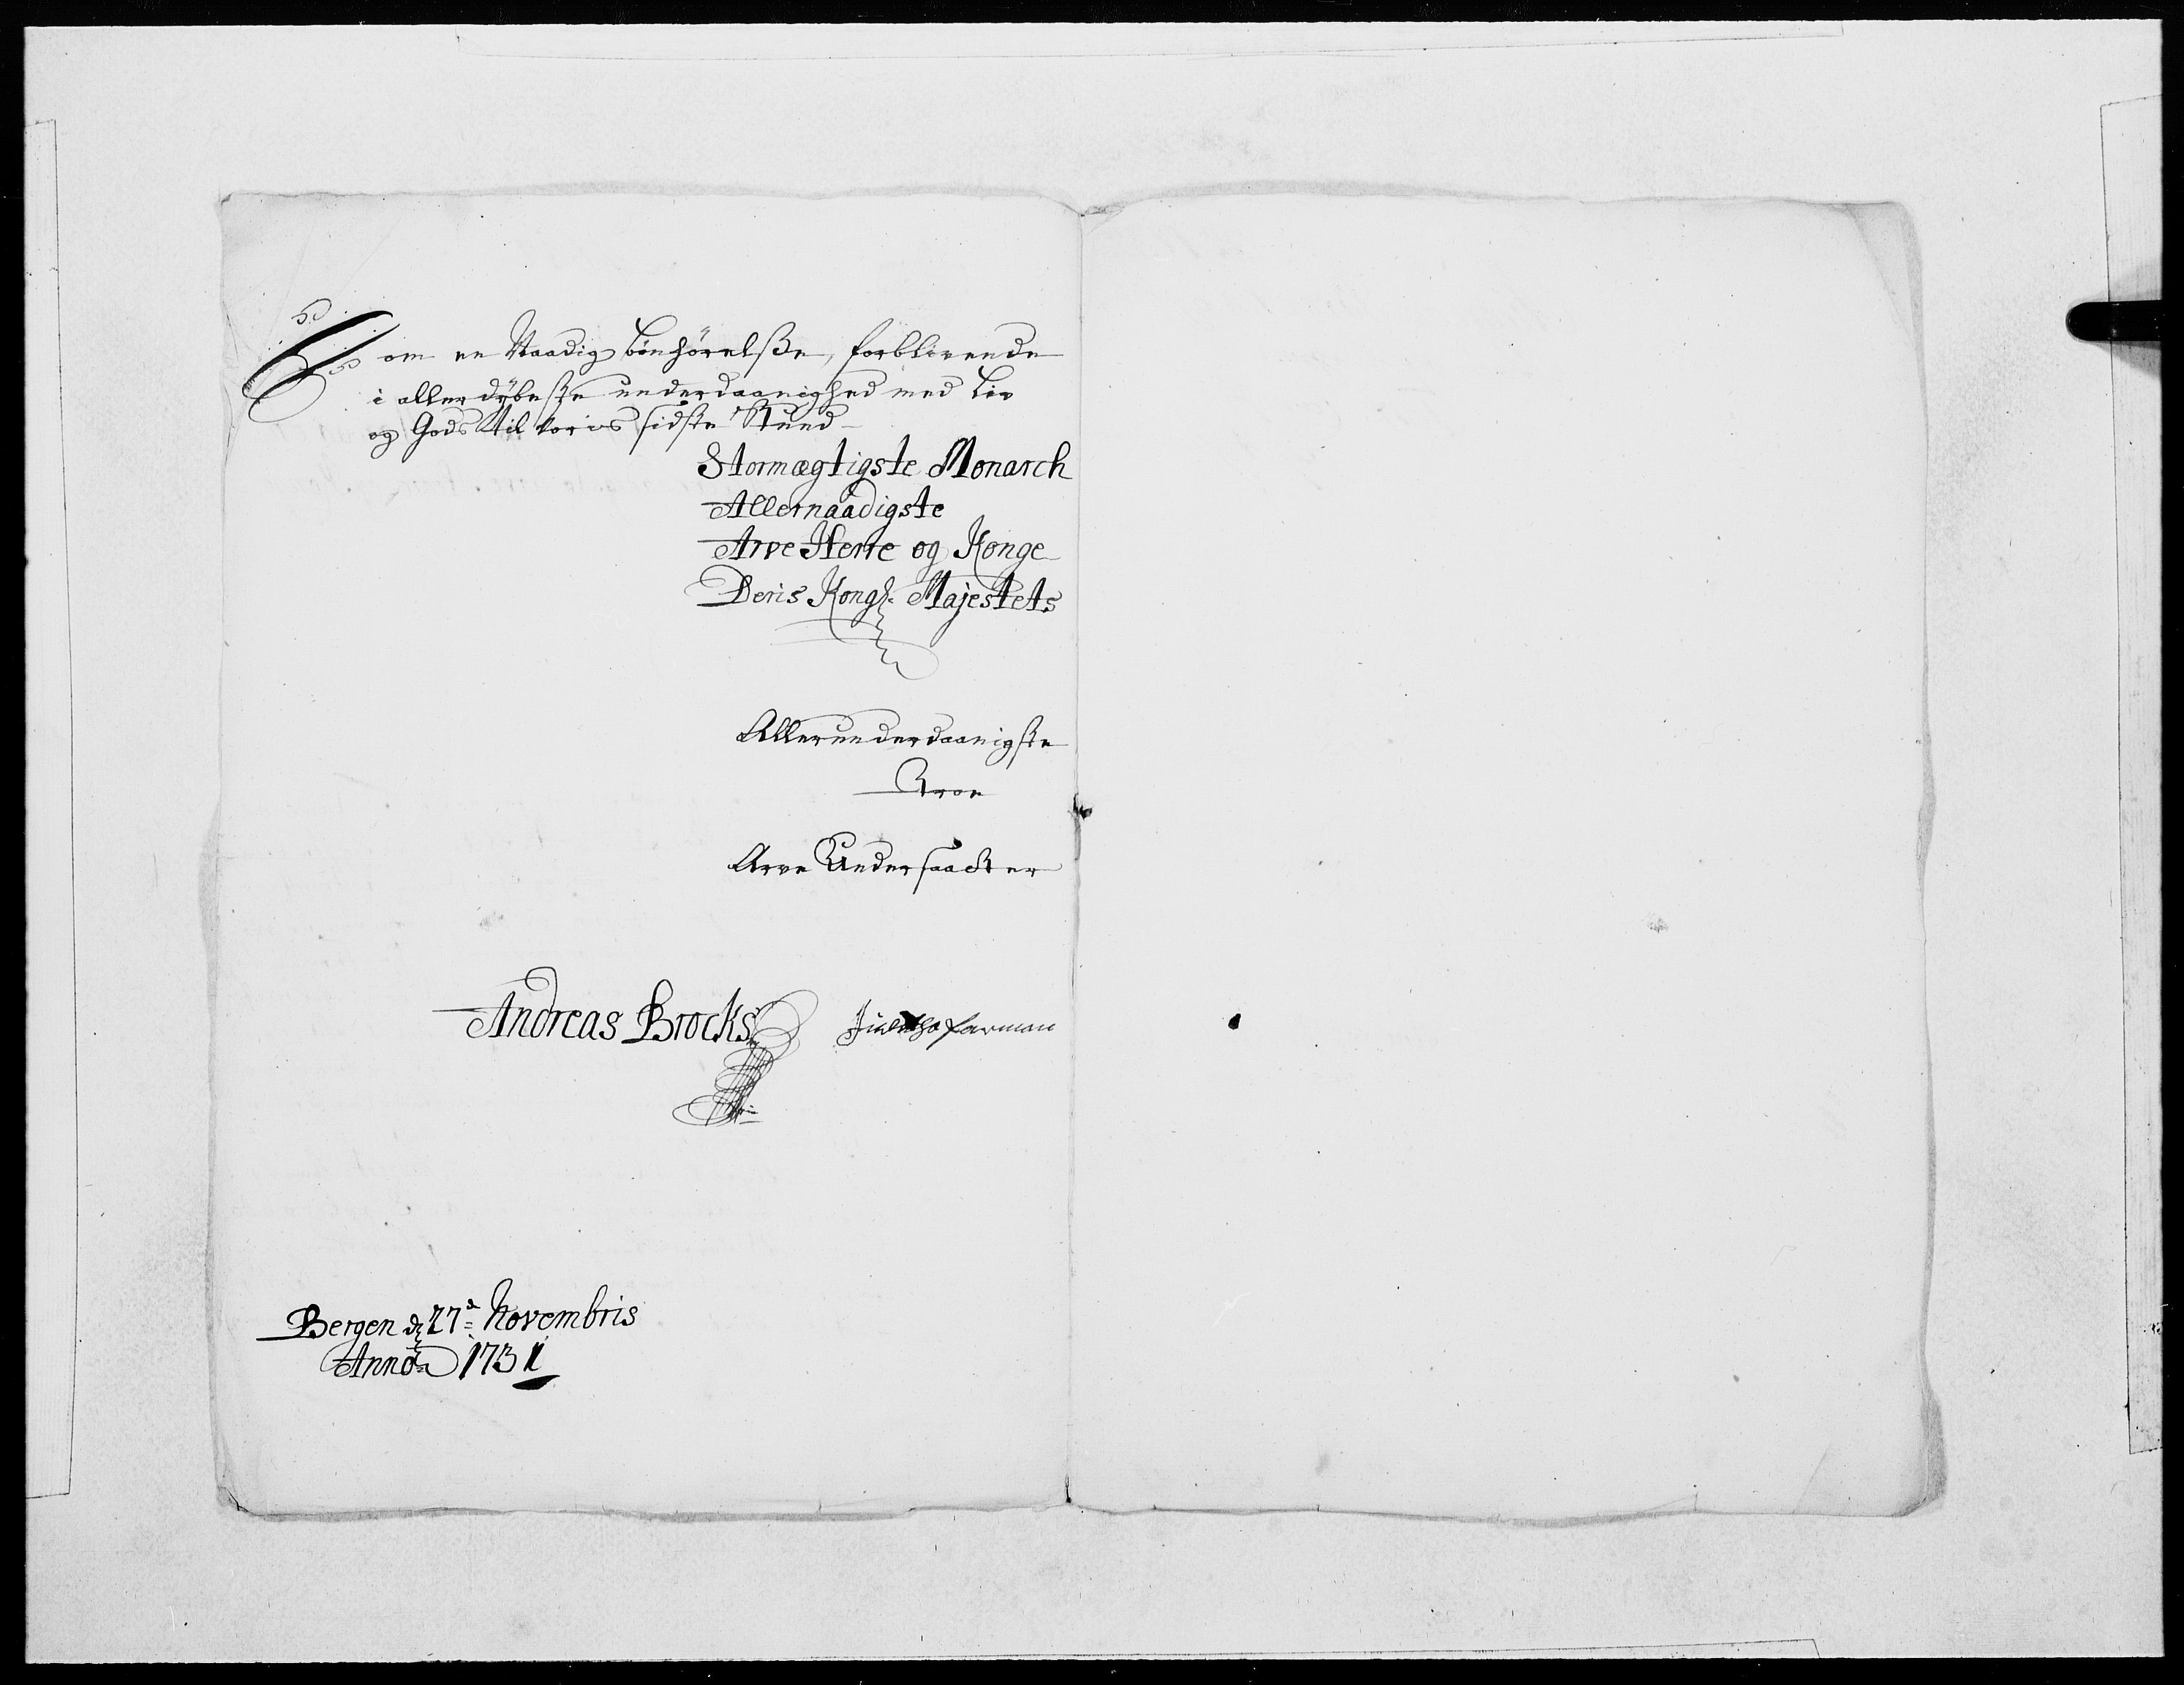 om en Naadig bönhörelsse, forblivende
i allerdÿbeste underdaanighed med Liv
og Gods til voris sidste Stund
Stormægtigste Monarch
Allernaadigste
Arve Herre og Konge
Deris Kongl: Majestets
Allerunderdaanigste
Troe
Arve Undersaatter
Andreas Brocks
Bergen d 27d Novembris
Anno 1731